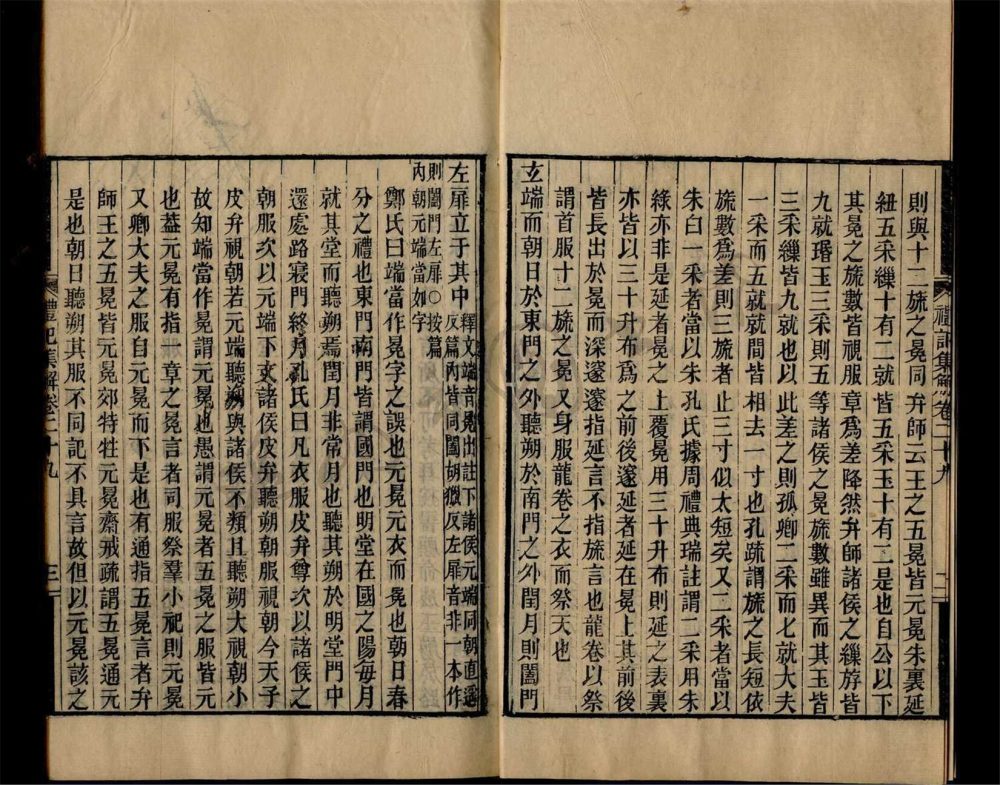 則與十二旒之冕同弁師云王之五冕皆元冕朱裏延
紐五采繅十有二就皆五采玉十有二是也自公以下
其冕之旒數皆視服章爲差降然弁師諸侯之繅斿皆
九就瑉玉三采則五等諸侯之冕旒數雖異而其玉皆
三采繅皆九就也以此差之則孤卿二采而七就大夫
一采而五就就間皆相去一寸也孔疏謂旒之長短依
旒數爲差則三旒者止三寸似太短矣又二采者當以
朱白一采者當以朱孔氏據周禮典瑞註謂二采用朱
綠亦非是延者冕之上覆冕用三十升布則延之表裏
亦皆以三十升布爲之前後邃延者延在冕上其前後
皆長出於冕而深邃邃指延言不指旒言也龍卷以祭
謂首服十二旒之冕又身服龍卷之衣而祭天也
玄端而朝日於東門之外聽朔於南門之外閏月則闔門
禮記集解卷二十九
二
左扉立于其中釋文端音冕出註下諸侯元端同朝直遙
反篇內皆同闔胡獵反左扉音非一本作
則闔門左扉○按篇
內朝元端當如字
鄭氏曰端當作冕字之誤也元冕元衣而冕也朝日春
分之禮也東門南門皆謂國門也明堂在國之陽每月
就其堂而聽朔焉閏月非常月也聽其朔於明堂門中
還處路寢門終月孔氏曰凡衣服皮弁尊次以諸侯之
朝服次以元端下文諸侯皮弁聽朔朝服視朝今天子
皮弁視朝若元端聽朔與諸侯不類且聽朔大視朝小
故知端當作冕謂元冕也愚謂元冕者五冕之服皆元
也蓋元冕有指一章之冕言者司服祭羣小祀則元冕
又卿大夫之服自元冕而下是也有通指五冕言者弁
師王之五冕皆元冕郊特牲元冕齋戒疏謂五冕通元
是也朝日聽朔其服不同記不具言故但以元冕該之
禮記集解卷二十九
三